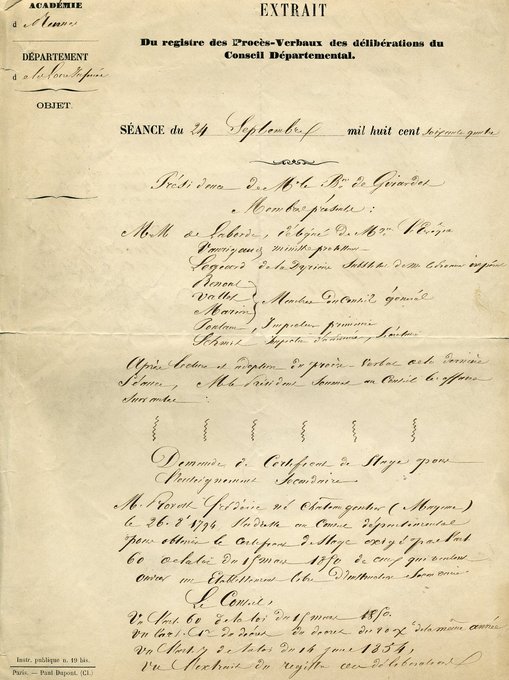 ACADÉMIE
d Rennes
DÉPARTEMENT
d la Loire Inférieure
OBJET.
EXTRAIT
Du registre des Procès-Verbaux des délibérations du
Conseil Départemental.
SÉANCE du 24 Septembre mil huit cent soixante quatre
Présidence de Mr le Bon de Girardot
Membres présents :
MM de Laborde, délégué de Mgr l'Evêque
Vaurigaud ministre protestant
de la Pyrimé Substitut de Mr le Procureur impérial
Renoul
Vallet
Marion
Membres du Conseil général
Inspecteur primaire
Schmit Inspecteur d'Académie, Secrétaire
Après lecture et adoption du procès-verbal de la dernière
séance, Mr le Président soumet au Conseil les affaires
suivantes :
Demande de Certificat de Stage pour
l'enseignement Secondaire
M. Frédéric né Château gontier (Mayenne)
le 26 1794 s'adresse au Conseil départemental
pour obtenir le Certificat de Stage exigé par l'art
60 de la loi du 15 mars 1850 de ceux qui veulent
ouvrir un Etablissement libre d'instruction Secondaire.
Le Conseil,
Vu l'art 60 de la loi du 15 mars 1850.
Vu l'art. 1er du décret du 20 Xbre de la même année
Vu l'art 7 de la loi du 14 juin 1854,
Vu l'extrait du registre des délibérations
Instr. publique n. 19 bis.
Paris. — Paul Dupont. (Cl.)